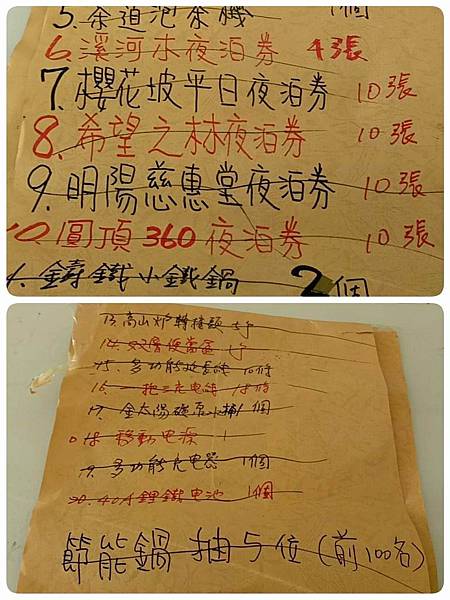 5. 茶道泡茶機 1個
6. 溪河木夜泊券 4張
7. 櫻花坡平日夜泊券 10張
8. 希望之林夜泊券 10張
9. 明陽慈惠堂夜泊券 10張
10. 圓頂360夜泊券 10張
鑄鐵小鐵鍋 2個
13. 高山炉轉接頭
14. 双層便當盒
15. 多功能延長線
16. 一抱三充电線
17. 金太陽
18 移動电源 1
19. 多功能充电器 1個
20. 40A鋰鐵电池 1個
節能鍋 抽5位 (前100名)